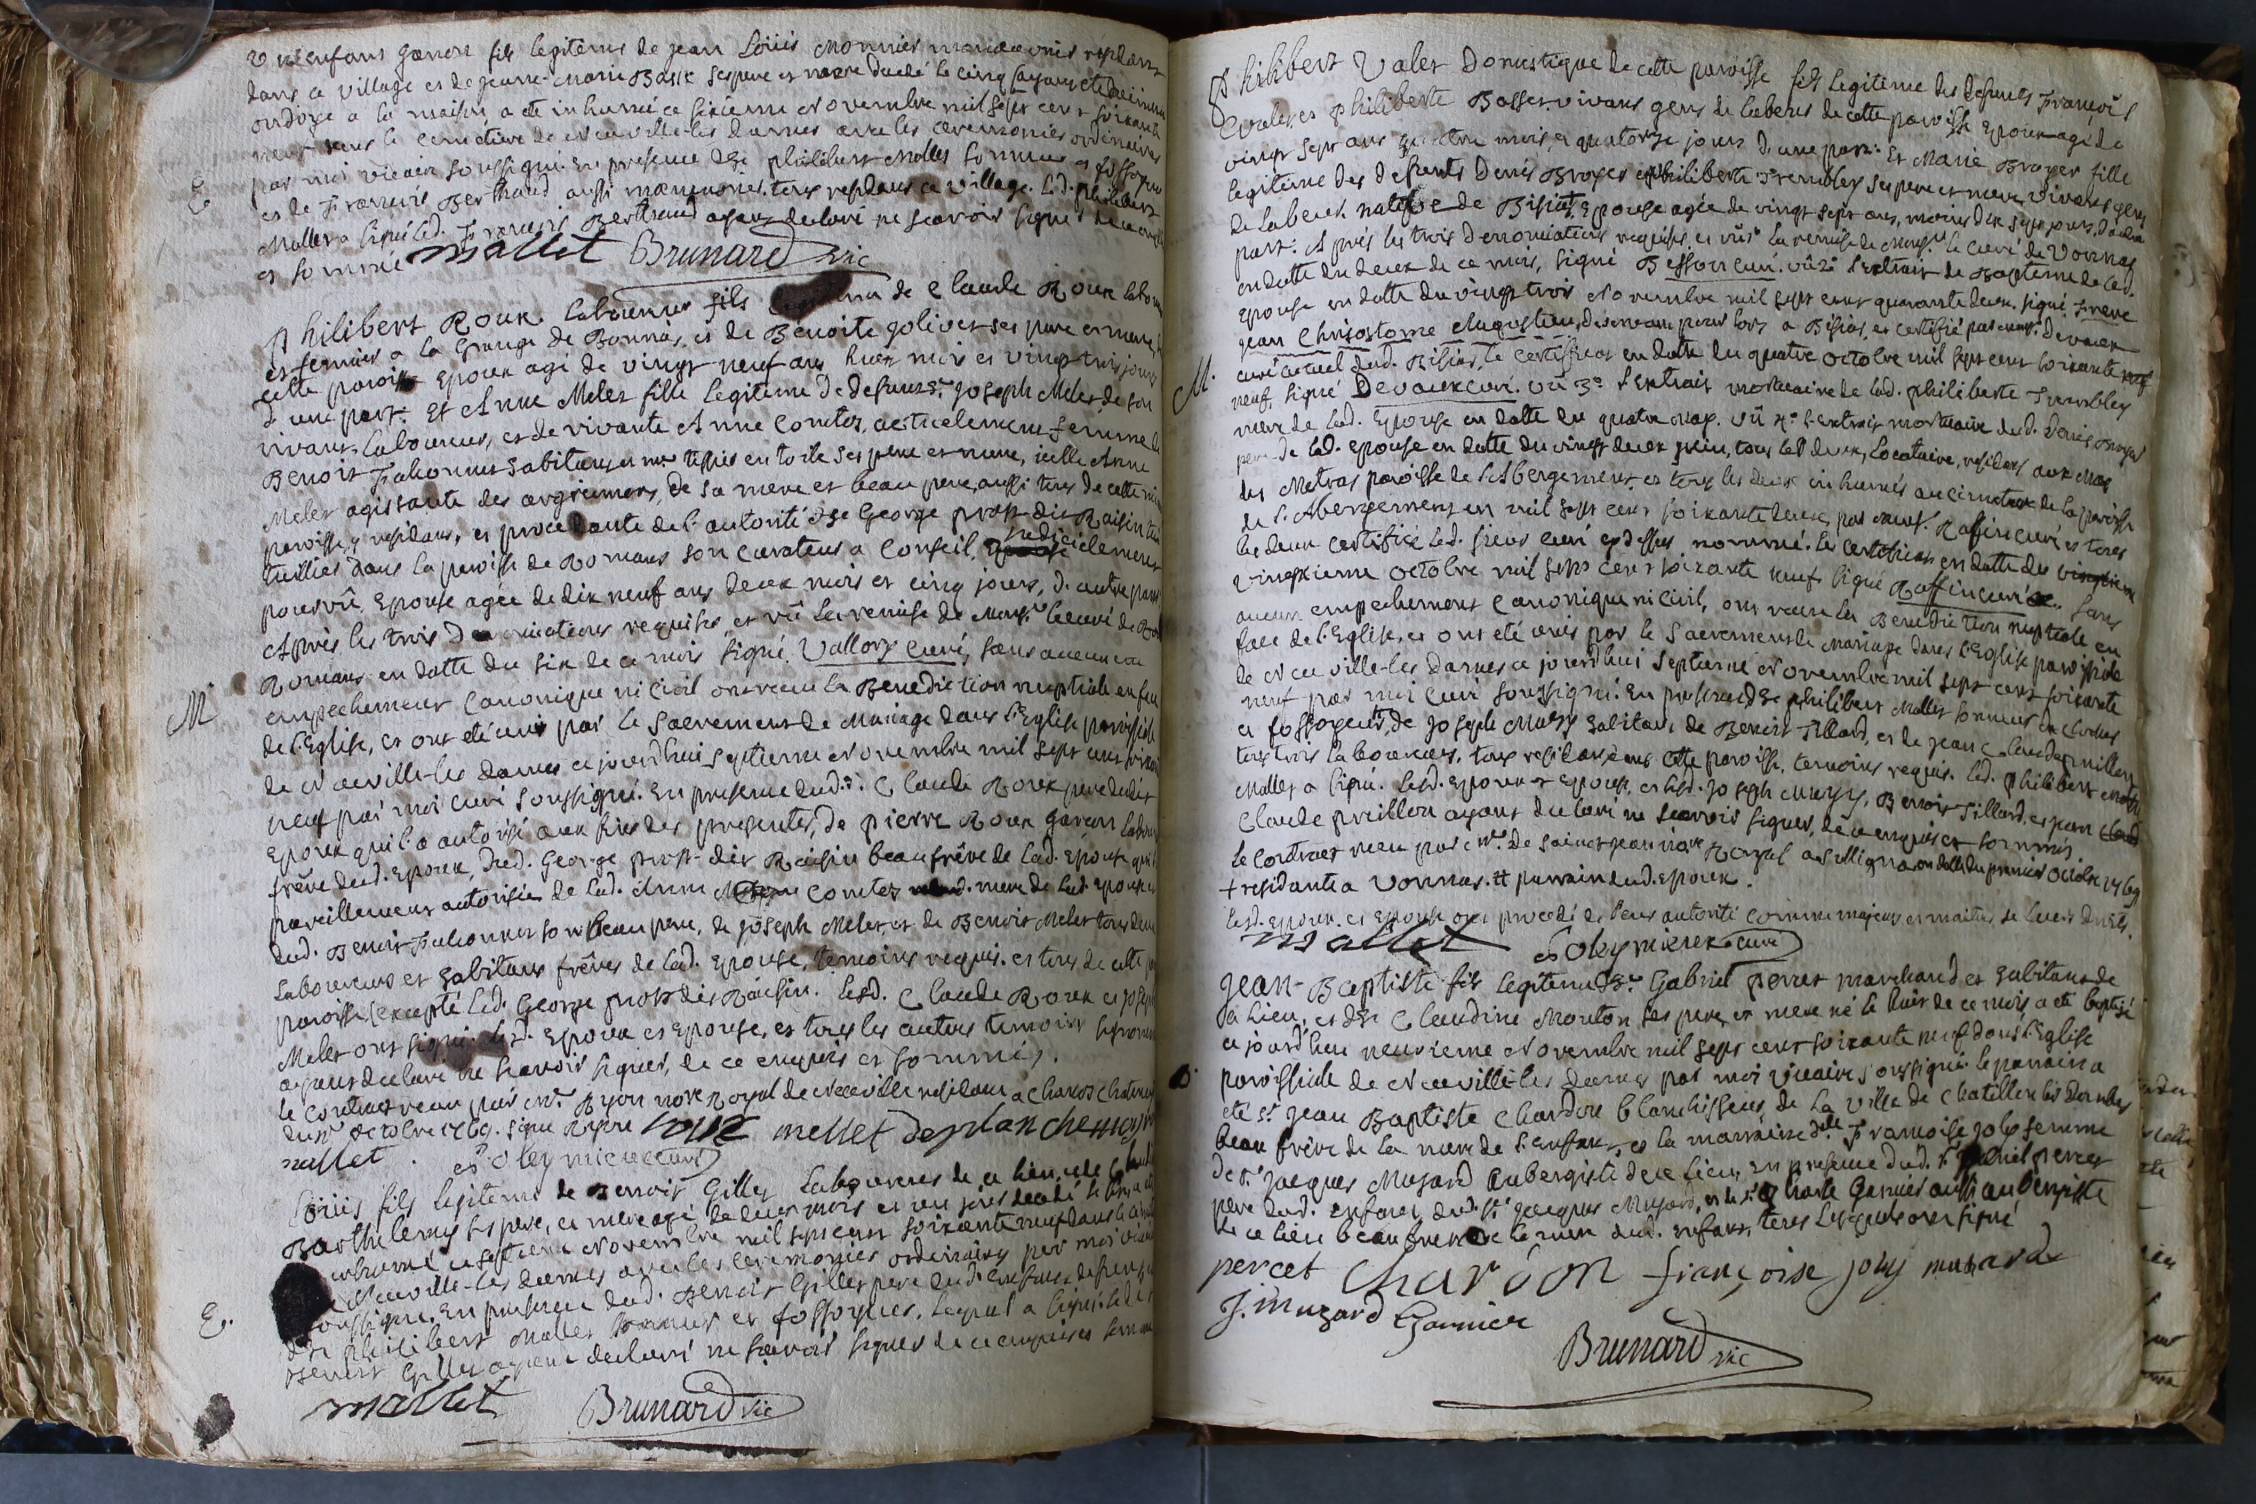 enfant garçon fils legitime de jean Loüis Monnier manœuvrier residant
dans ce village et de jeanne-Marie Bask ses pere et mere decedé le cinq ayant eté
ondoyé a la maison a eté inhumé ce sixieme Novembre mil sept cent soixante
neuf dans le cimetiere de Neuville-les Dames avec les ceremonies ordinaires
par moi vicaire soussigné. En presence de Philibert Mallet sonneur et fossoyeur
et de François Berthaud aussi manouvrier tous residans ce village. Led. philibert
Mallet a signé led. François Berthaud ayant declaré ne scavoir signer de ce enquis
et sommé
mallet Brunard vic
E
Philibert Roux laboureur fils de Claude Roux
et fermier a la Grange de Bonnas, et de Benoite goliver ses pere et mere,
cette paroisse Epoux agé de vingt neuf ans huit mois et vingt trois jours
d'une part: Et Anne Melet fille legitime de defunt Sr. joseph Melet de son
vivant laboureur, et de vivante Anne Comtet, actuelement femme de
Benoit Falconnet habitant et me. tissier en toile ses pere et mere, icelle Anne
Melet agissante des agréments, de sa mere et beau pere, aussi tous de cette
paroisse, y residans, et procedante de l'autorité de George prost dit Raisin
tuillier dans la paroisse de Romans son curateur a Conseil judicielement
pourvû, Epouse agée de dix neuf ans deux mois et cinq jours, d'autre part
Après les trois denonciations requises et vû la remise de Monsr. le curé de
Romans en datte du six de ce mois signé Vallory curé, sans aucun
empechement canonique ni civil ont recu la Benediction nuptiale en face
de l'Eglise, et ont eté unis par le sacrement de Mariage dans l'Eglise paroissiale
M
de Neuville-les dames ce jourd'hui septieme Novembre mil sept cent soixante
neuf par moi curé soussigné. En presence dud. Sr. Claude Roux pere dudit
Epoux qui l'a autorisé aux fins des presentes, de pierre Roux garcon
frêre dud. Epoux, dud. George prost dit Raisin beau frêre de lad. Epouse
pareillement autorisée de lad. Anne Comtet mere de lad. Epouse
dud. Benoit Falconnet son beau pere, de joseph Melet, et de Benoit Melet tous deux
laboureurs et habitans frêres de lad. Epouse, temoins requis et tous de cette
paroisse excepté led. George prost dit Raisin. Lesd. Claude Roux et joseph
Melet ont signé lesd. Epoux et Epouse, et tous les autres temoins
ayant declaré ne scavoir signer, de ce enquis et sommés.
le contract recu par Me. Ryon nore. Royal de Neuville residant a
octobre 1769. signé Ryon Roux mellet
mallet curé
Loüis fils legitime de Benoit Gillet laboureur de ce lieu, et de
Barthelemy ses pere, et mere agé de deux mois et un jour decedé
inhumé ce septieme Novembre mil sept cent soixante neuf dans le
de Neuville-les dames avec les ceremonies ordinaires par moi vicaire
soussigné. En presence dud. Benoit Gillet pere dud. enfant
E.
de philibert Mallet sonneur et fossoyeur. Lequel a signé
Benoit Gillet ayant declaré ne scavoir signer de ce enquis et sommé
mallet Brunard vic
Philibert Valet Domestique de cette paroisse fils legitime des defunts François
Valet et Philiberte Basset vivans gens de labeur de cette paroisse Epoux agé de
vingt sept ans quatre mois, et quatorze jours d'une part: Et Marie Broyer fille
legitime des defunts Denis Broyer et philiberte Trembley ses pere et mere vivans gens
de labeur native de Bisiat, Epouse agée de vingt sept ans, moins dix sept jours, d'autre
part: Après les trois denonciations requises et vû 1o la remise de Monsr. le curé de Vonnas
en datte du deux de ce mois, signé Besson curé. vû 2o l'extrait de Baptême de lad.
Epouse en datte du vingt trois Novembre mil sept cent quarante deux, signé Frere
jean Chrisostome Augustin, desservant pour lors a Bisiat, et certifié par Monsr. Devaux
curé actuel dud. Bisiat, le certificat en datte du quatre octobre mil sept cent soixante
neuf signé Devaux curé. vû 3o l'extrait mortuaire de lad. philiberte Trembley
M.
mere de lad. Epouse en datte du quatre may. vû 4o l'extrait mortuaire dud. Denis Broyer
pere de lad. epouse en datte du vingt deux juin, tous les deux, Locataire, residans aux Mas
des Metras paroisse de l'Abergement et tous les deux inhumés au cimetiere de la paroisse
de l'Abergement en mil sept cent soixante deux, par Monsr. Raffin curé et tous
les deux certifié led. sieur curé cy dessus nommé. le certificat en datte du
vingtieme octobre mil sept cent soixante neuf signé Raffin curé. sans
aucun empechement canonique ni civil, ont recu la Benediction nuptiale en
face de l'Eglise, et ont eté unis par le Sacrement de Mariage dans l'Eglise paroissiale
de Neuville-les Dames ce jourd'hui septieme Novembre mil sept cent soixante
neuf par moi curé soussigné. En presence de philibert Mallet sonneur
et fossoyeur, de joseph Mury habitant de Benoit Tillard, et de jean Claude preillon
tous trois laboureurs, tous residans dans cette paroisse, temoins requis. Led. philibert
Mallet a signé. Lesd. Epoux et Epouse, et lesd. joseph Mury, Benoit Tillard, et jean
Claude preillon ayant declaré ne scavoir signer, de ce enquis et sommés
le contract recu par Me. de Saint jean nore Royal a Sulligna en datte du premier octobre 1769
+ residante a Vonnas. # parrain dud. Epoux.
Lesd. epoux et Epouse ont procedé de leur autorité comme majeurs et maitres de leurs droits.
mallet curé
jean-Baptiste fils legitime de Sr. Gabriel perret marchand et habitant de
ce lieu, et de Claudine Mouton ses pere, et mere né le huit de ce mois a eté baptisé
ce jourd'hui neuvieme Novembre mil sept cent soixante neuf dans l'Eglise
B.
paroissiale de Neuville-les dames par moi vicaire soussigné. le parrain a
eté Sr. jean Baptiste Chardon blanchisseur de la ville de Chatillon les Dombes
beau frêre de la mere de l'enfant, et la marraine dlle. Francoise joly femme
de Sr. jacques Musard aubergiste de ce lieu, en presence dud. Sr. Gabriel perret
pere dud. enfant, dud. Sr. jacques Musard, et de Sr. Charle Garnier aussi aubergiste
de ce lieu beau frere de la mere dud. enfant, tous lesquels ont signé
perret Chardon françoise joly musard
J. Muzard Garnier
Brunard vic